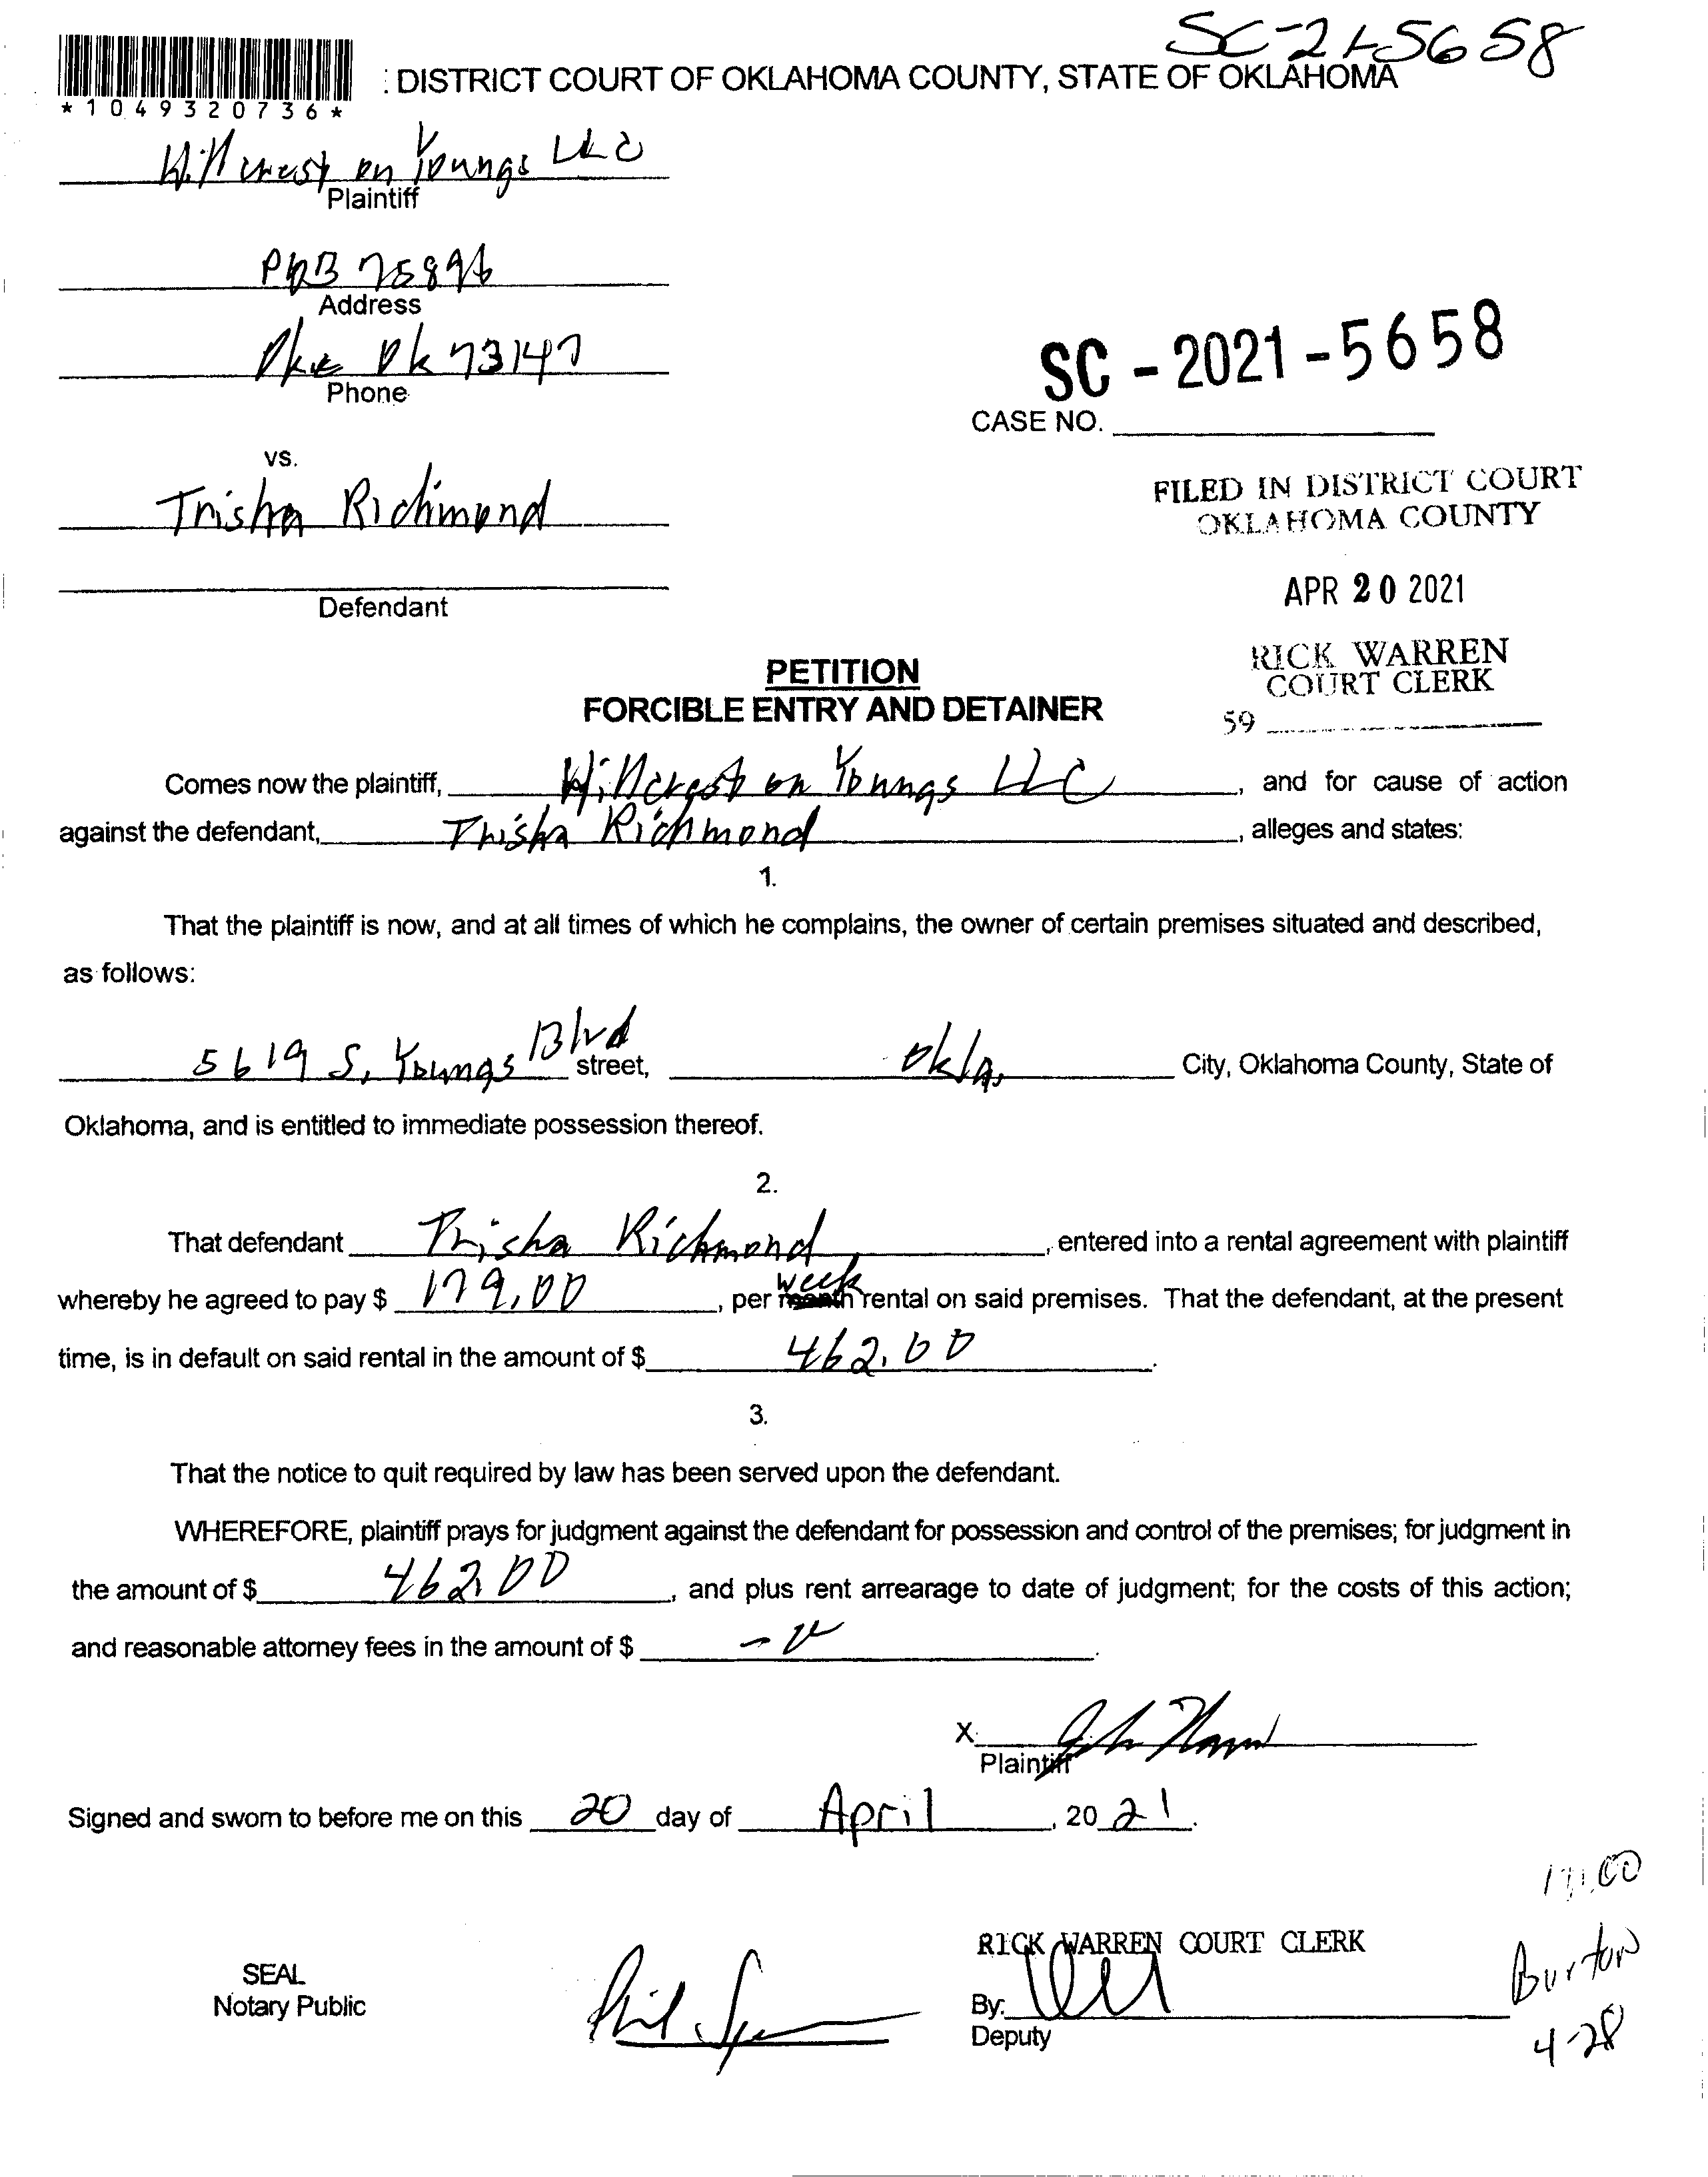 SC-21-5658
*1049320736*
: DISTRICT COURT OF OKLAHOMA COUNTY, STATE OF OKLAHOMA
Hillcrest on Youngs LLC
Plaintiff
POB 75896
Address
Okc Ok 73147
Phone
SC - 2021 - 5658
CASE NO.
vs.
Trisha Richmond
FILED IN DISTRICT COURT
OKLAHOMA COUNTY
APR 20 2021
Defendant
RICK WARREN
COURT CLERK
59
PETITION
FORCIBLE ENTRY AND DETAINER
Comes now the plaintiff, Hillcrest on Youngs LLC, and for cause of action
against the defendant, Trisha Richmond, alleges and states:
1.
That the plaintiff is now, and at all times of which he complains, the owner of certain premises situated and described,
as follows:
5619 S. Youngs Blvd street, Okla. City, Oklahoma County, State of
Oklahoma, and is entitled to immediate possession thereof.
2.
That defendant Trisha Richmond, entered into a rental agreement with plaintiff
whereby he agreed to pay $ 179.00, per week rental on said premises. That the defendant, at the present
time, is in default on said rental in the amount of $ 462.00.
3.
That the notice to quit required by law has been served upon the defendant.
WHEREFORE, plaintiff prays for judgment against the defendant for possession and control of the premises; for judgment in
the amount of $ 462.00, and plus rent arrearage to date of judgment; for the costs of this action;
and reasonable attorney fees in the amount of $
X
Plaintiff
Signed and sworn to before me on this 20 day of April, 2021.
RICK WARREN COURT CLERK
SEAL
Notary Public
By:
Deputy
Burton
4-28